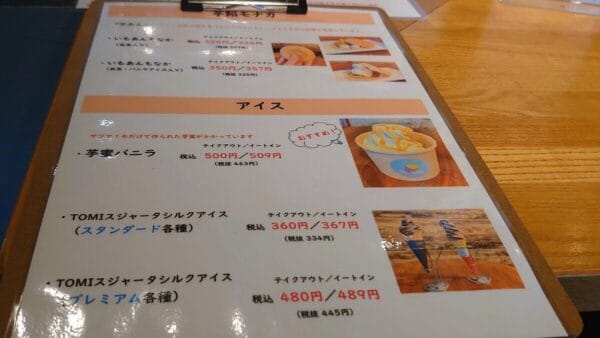 芋餡モナカ
・いもあんもなか
テイクアウト/イートイン
税込
・いもあんもなか
テイクアウト/イートイン
税込 350円/357円
アイス
サツマイモだけで作られた芋蜜がかかっています
おすすめ!
・芋蜜バニラ
テイクアウト/イートイン
税込 500円/509円
(税抜 463円)
・TOMIスジャータシルクアイス
(スタンダード各種)
テイクアウト/イートイン
税込 360円/367円
(税抜 334円)
・TOMIスジャータシルクアイス
(プレミアム各種)
テイクアウト/イートイン
税込 480円/489円
(税抜 445円)